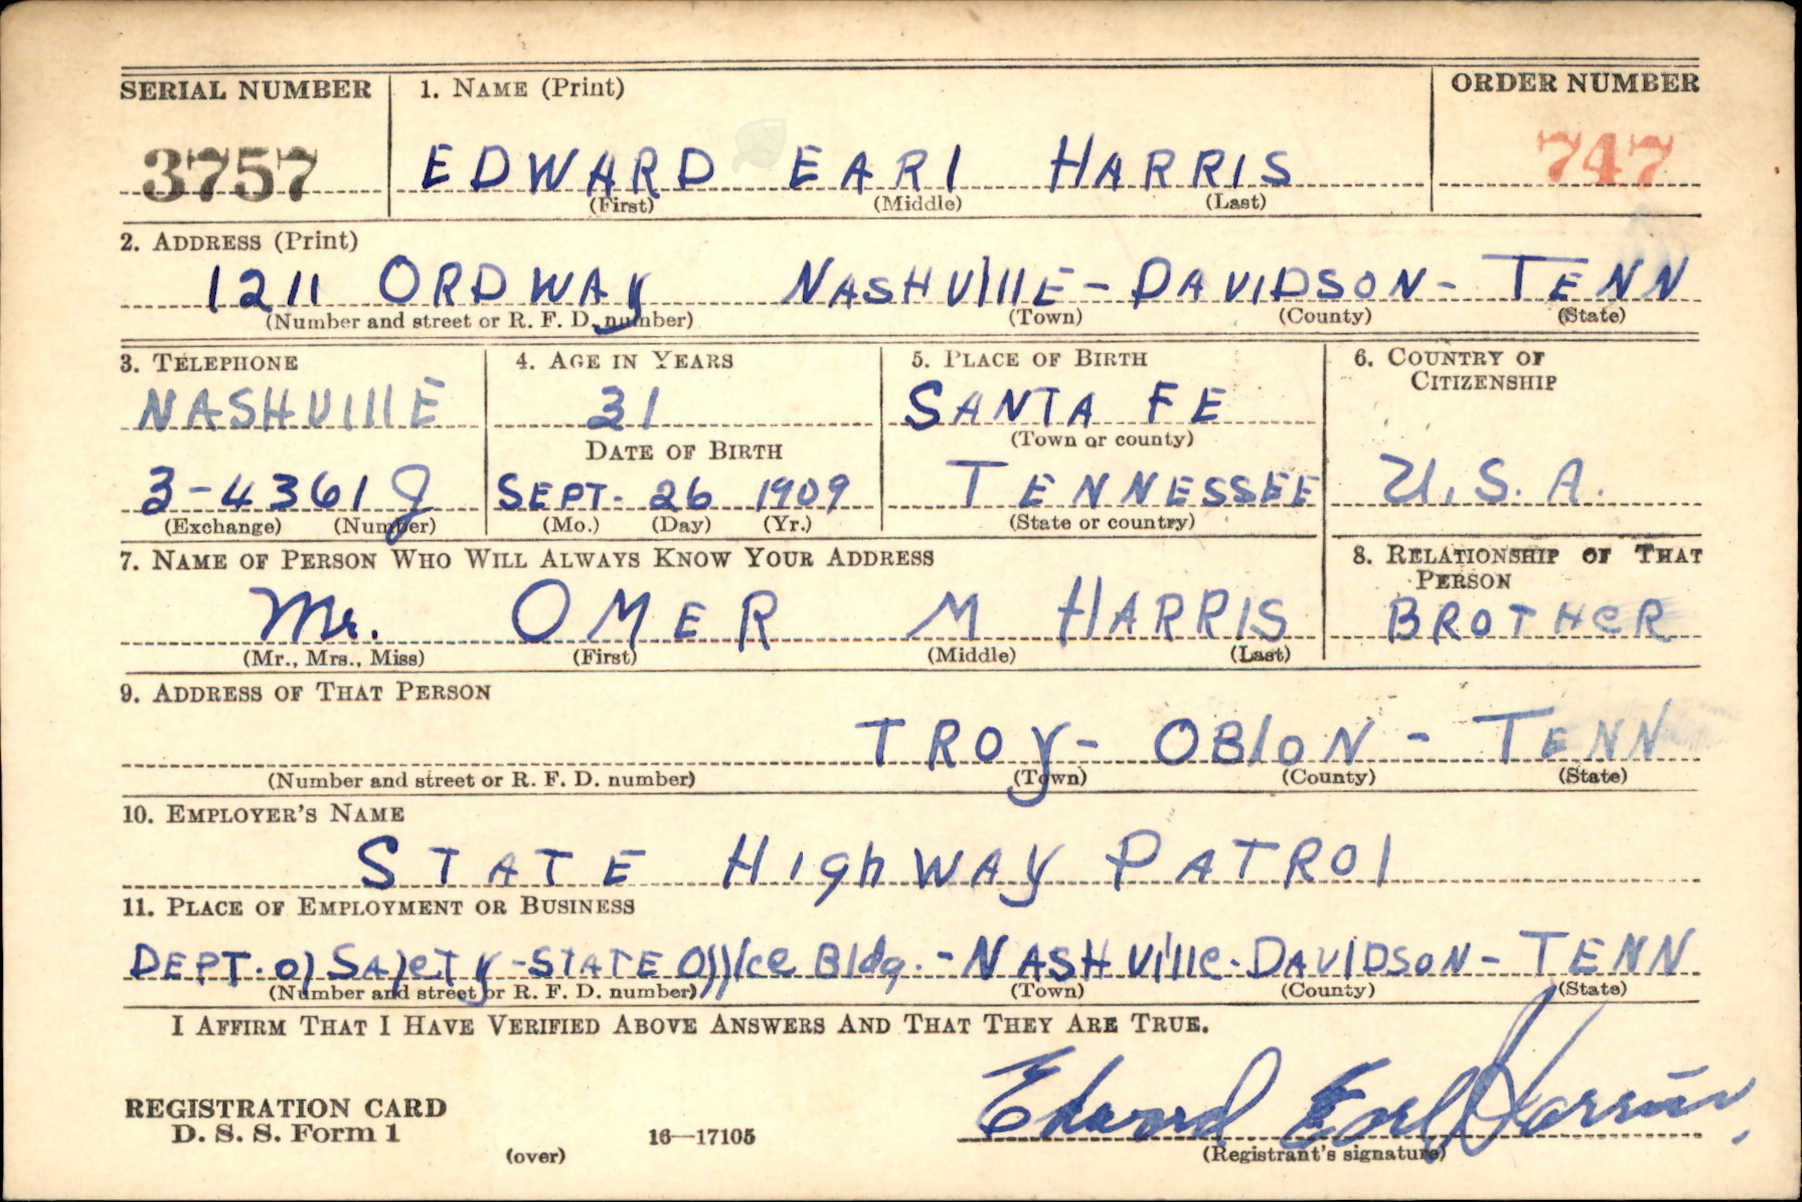 SERIAL NUMBER 1. NAME (Print) ORDER NUMBER
3757 EDWARD EARl HARRIS 747
(First) (Middle) (Last)
2. ADDRESS (Print)
1211 ORDWAy NASHVIllE - DAVIDSON - TENN
(Number and street or R. F. D. number) (Town) (County) (State)
3. TELEPHONE 4. AGE IN YEARS 5. PLACE OF BIRTH 6. COUNTRY OF
CITIZENSHIP
NASHVIllE 31 SANTA FE
DATE OF BIRTH (Town or county)
3-4361 J SEPT. 26 1909 TENNESSEE U.S.A.
(Exchange) (Number) (Mo.) (Day) (Yr.) (State or country)
7. NAME OF PERSON WHO WILL ALWAYS KNOW YOUR ADDRESS 8. RELATIONSHIP OF THAT
PERSON
Mr. OMER M HARRIS BROTHeR
(Mr., Mrs., Miss) (First) (Middle) (Last)
9. ADDRESS OF THAT PERSON
TROy - OBION - TENN
(Number and street or R. F. D. number) (Town) (County) (State)
10. EMPLOYER'S NAME
STATE HighWAy PATROl
11. PLACE OF EMPLOYMENT OR BUSINESS
DEPT. of SAfeTy - STATE Office Bldg. - NASHVille - DAVIDSON - TENN
(Number and street or R. F. D. number) (Town) (County) (State)
I AFFIRM THAT I HAVE VERIFIED ABOVE ANSWERS AND THAT THEY ARE TRUE.
Edward Earl Harris
REGISTRATION CARD
D. S. S. Form 1 (over) 16—17105 (Registrant's signature)